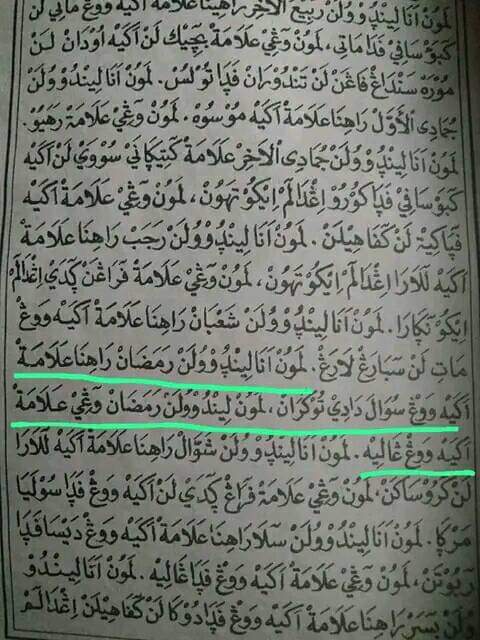 لمون انا ليندو وولن ربيع الآخر راهنا علامة اكيه ووغ ماتي لن
كبوسافي فدا ماتي، لمون وڠي علامة بچيك لن اكيه اودان لن
موره سنداڠ فاڠن لن تندوران فدا تولس. لمون انا ليندو وولن
جمادى الأول راهنا علامة اكيه موسوه. لمون وڠي علامة رهيو.
لمون انا ليندو وولن جمادى الاخر علامة كتيكاني سووي لن اكيه
كبوسافي فدا كورو اڠدالم ايكو تهون، لمون وڠي علامة اكيه
فچاكيت لن كفاهيلن. لمون انا ليندو وولن رجب راهنا علامة
اكيه لارا اڠدالم ايكو تهون، لمون وڠي علامة فراڠن ڮدي اڠدالم
ايكو نڮارا. لمون انا ليندو وولن شعبان راهنا علامة اكيه ووڠ
مات لن سبارڠ لارڠ. لمون انا ليندو وولن رمضان راهنا علامة
اكيه ووڠ سوال دادي توكران، لمون ليندو وولن رمضان وڠي علامة
اكيه ووڠ ڠاليه. لمون انا ليندو وولن شوال راهنا علامة اكيه لارا
لن كروساكن. لمون وڠي علامة فراڠ ڮدي لن اكيه ووڠ فدا سوليا
مركا. لمون انا ليندو وولن سلا راهنا علامة اكيه ووڠ ديسا فدا
ريبوتن، لمون وڠي علامة اكيه ووڠ فدا ڠاليه. لمون انا ليندو
وولن بسر راهنا علامة اكيه ووڠ فدا دوكا لن كفاهيلن اڠدالم